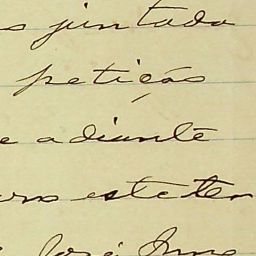 s juntada
petição
e adiante
este ter
José